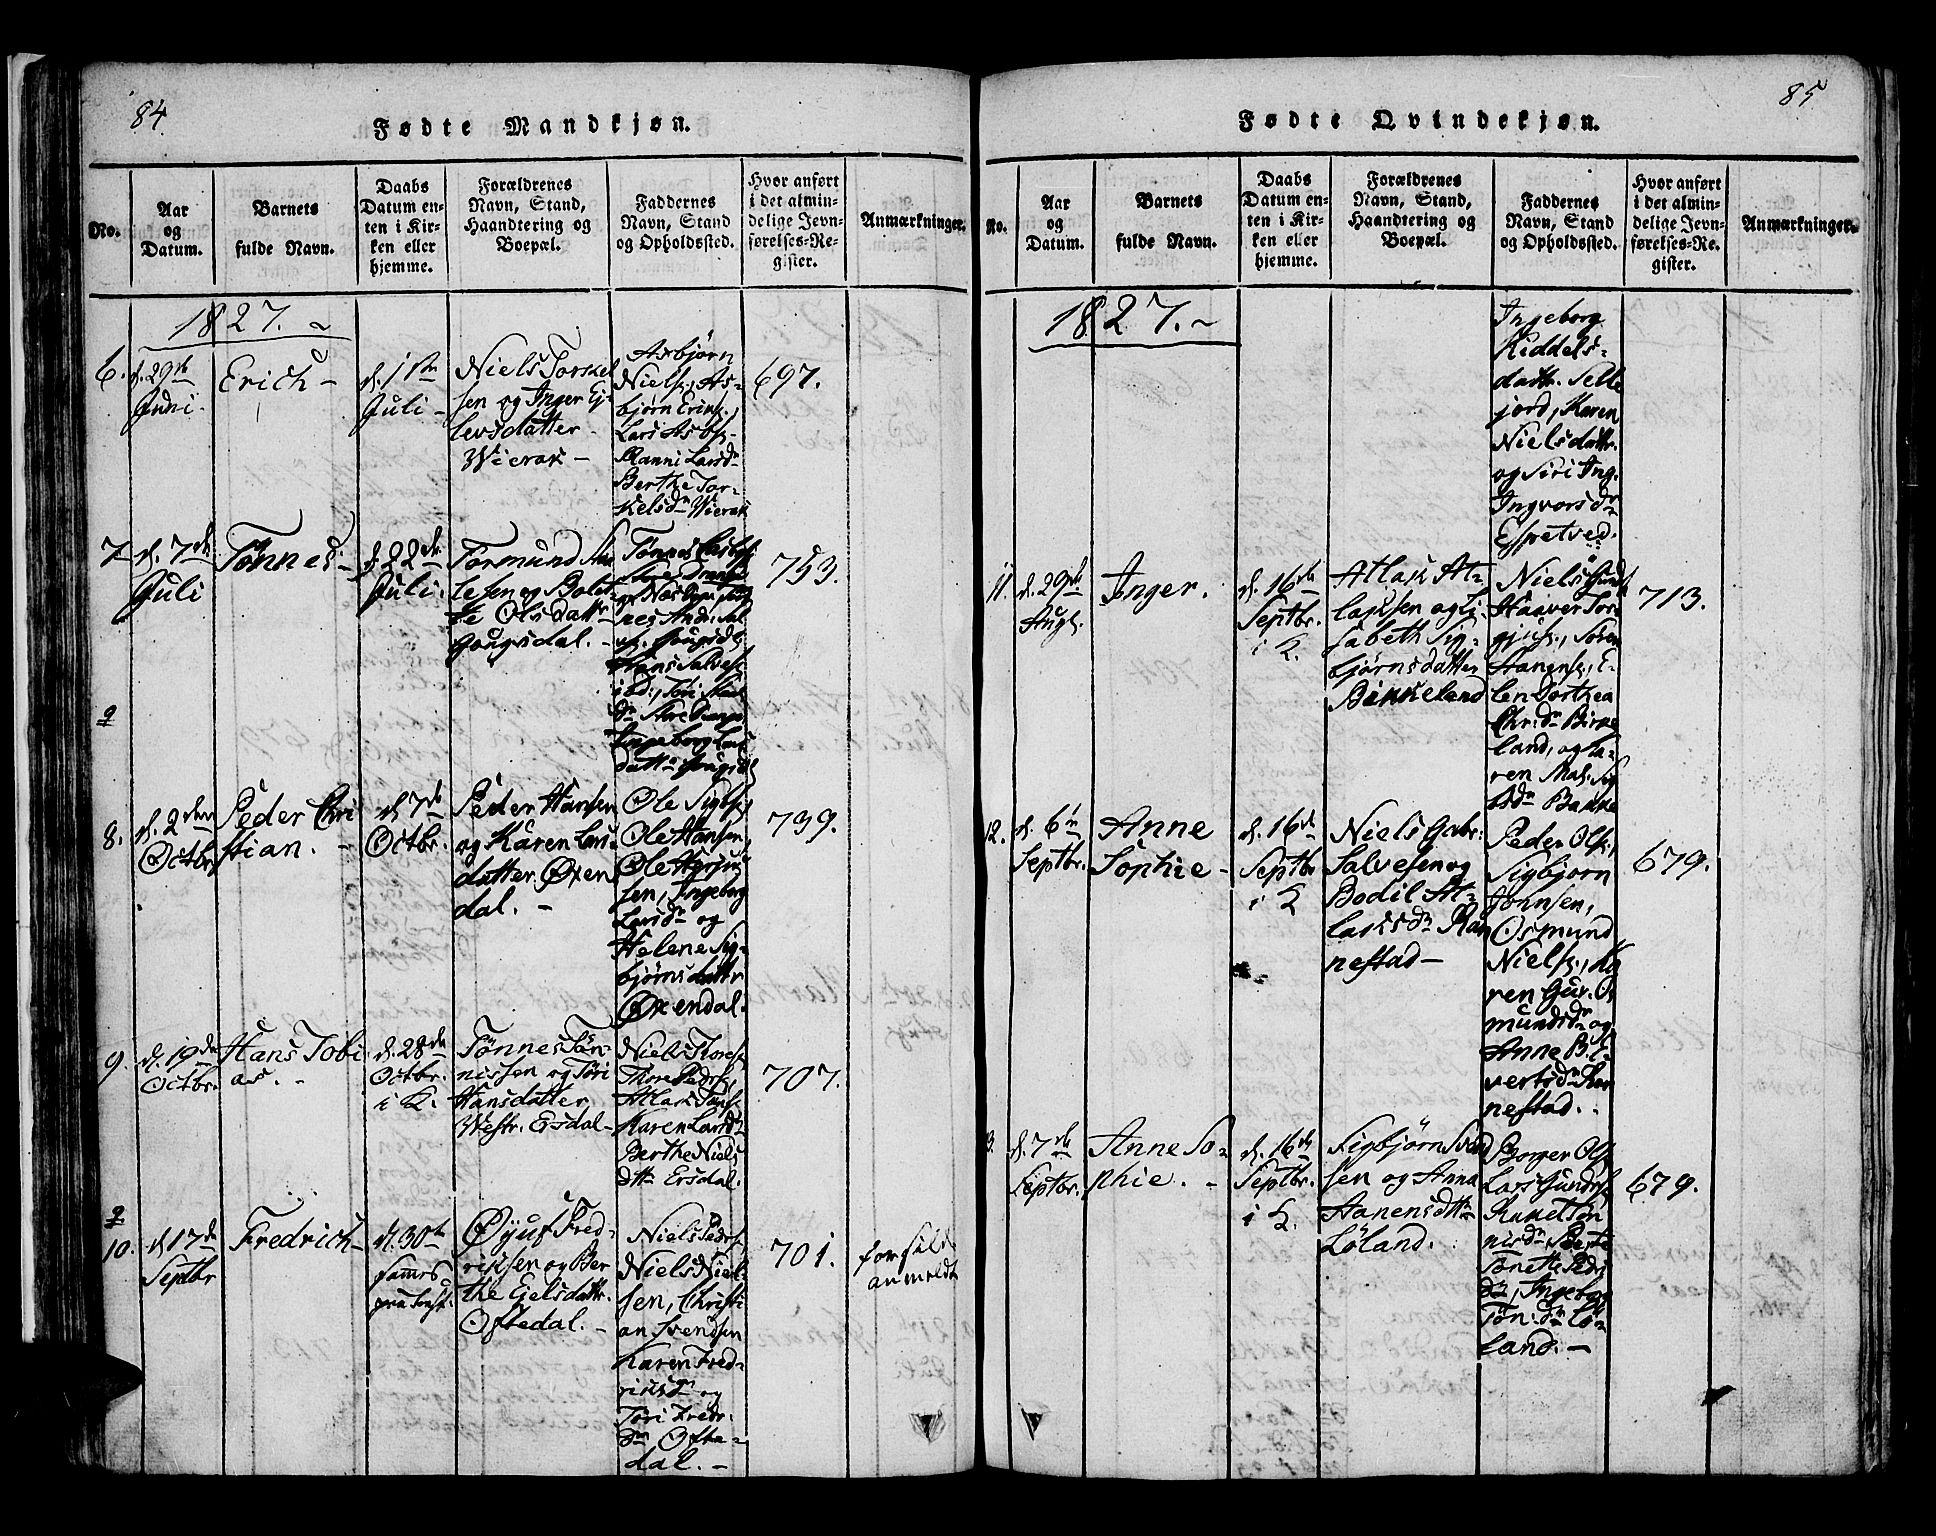 84
Fødte Mandkjøn.
No.
Aar
og
Datum.
Barnets
fulde Navn.
Daabs
Datum en-
ten i Kir-
ken eller
hjemme.
Forældrenes
Navn, Stand,
Haandtering og
Boepæl.
Faddernes
Navn, Stand
og Opholdssted.
Hvor anført
i det almin-
delige Jevn-
førelses-Re-
gister.
Anmærkninger.
1827.
6.
d. 29de
Juni.
Erich
d. 1ste
Juli
Niels Torskel
sen og Inger Ej-
levsdatter
Wierak
Asbjørn
Niels., As-
bjørn Erins.,
Lars Asbs.
Ranni Larsdr
Berthe Tor-
kelsdr Wierak
697.
7
d. 7de
Juli
Tönnes
d. 22de
Juli.
Tormund
lesen og Bolet-
te Olsdattr
Gougsdal.
Tønnes
Hans Salves.
753.
8.
d. 2den
Octbr
Peder Chri
stian.
d. 7de
Octbr.
Peder Hansen
og Karen Lars
datter Øxen
dal.
Ole Sigbs.
Ole Hansen,
Ole
sen, Ingeborg
Larsdr og
Helene Sig-
bjørnsdattr
Øxendal.
739.
9.
d. 19de
Octbr.
Hans Tobi
as.
d. 28de
Octbr.
i K.
Tønnes Tøn-
nissen og Töri
Hansdatter
Westr. Ersdal
Niels Thores.
Thore Peders.
Atlak
Karen Larsdr
Berthe Niels
dtr Ersdal.
707.
10.
d. 17de
Septbr
Fredrich
d. 30te
Øjuf Fred-
riksen og Ber
the Ejelsdattr.
Oftedal.
Niels Peders.
Niels Niel-
sen, Christi
an Svendsen
Karen Fred-
riksdr og
Töri Fredr.
dr Ofte-
dal.
701.
for silde
anmeldt
85
Fødte Qvindekjøn.
No.
Aar
og
Datum.
Barnets
fulde Navn.
Daabs
Datum en-
ten i Kir-
ken eller
hjemme.
Forældrenes
Navn, Stand,
Haandtering og
Boepæl.
Faddernes
Navn, Stand
og Opholdssted.
Hvor anført
i det almin-
delige Jevn-
førelses-Re-
gister.
Anmærkninger.
1827.
Ingeborg
Kiddels-
dattr. Selle
jord, Karen
Nielsdattr.
og Siri Ing.
Ingvorsdr
Espetved.
11.
d. 29de
Augs.
Inger.
d. 16de
Septbr.
i K.
Atlak At-
laksen og Li-
sabeth Sig-
bjørnsdatter
Birkeland
Niels
Haaver Tor-
gjus., Sören
Hanens., E-
len Dorthea
Chr:dr Birke
land, og Ka-
ren Mal. Sig
dr Bakke
713.
12.
d. 6te
Septbr.
Anne
Sophie
d. 16de
Septbr
i K
Niels Gabr:
Salvesen og
Bodil At-
laksdr Ran
nestad
Peder Ols.,
Sigbjørn
Jonnsen,
Osmund
Niels., Ka
ren Gur. Os
mundsdr og
Anne El-
vertsdr Ran
nestad.
679.
3.
d. 7de
Septbr.
Anne So-
phie.
d. 16de
Septbr.
i K.
Sigbjørn Svend
sen og Anna
Hanensdtr
Løland.
Borger Ols.
Lars Gunders.
Anne Tön
nisdr Berte
Tonette Peders
dr, Ingeborg
Tön:dr Lö-
land.
679.